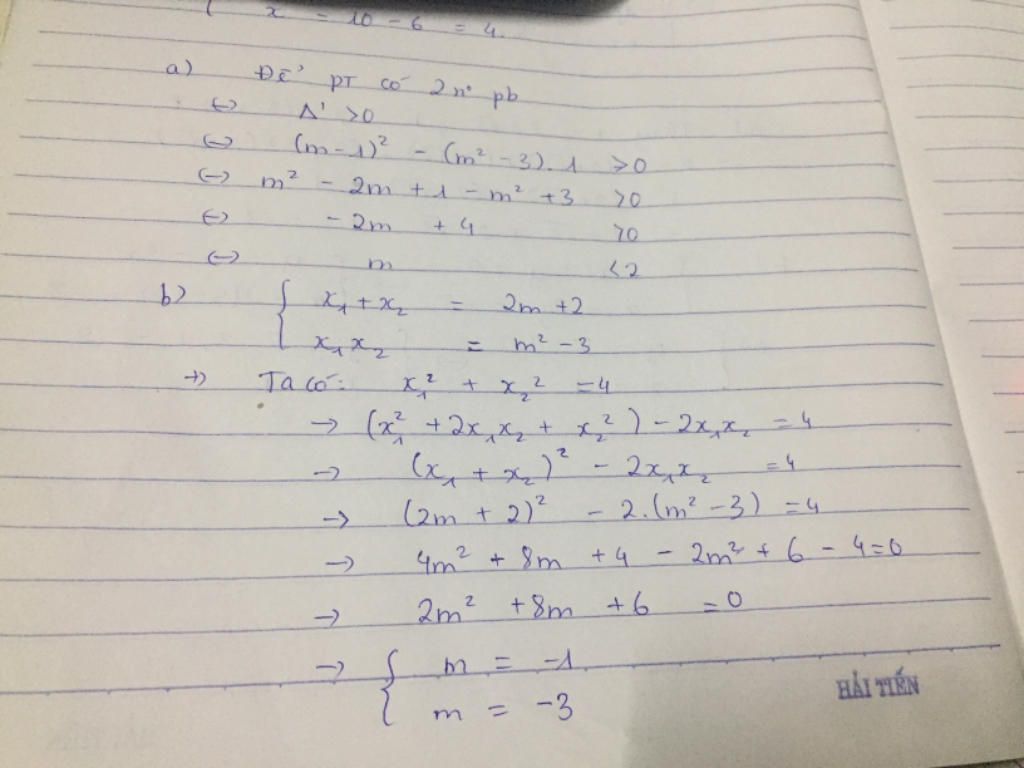 x = 10 - 6 = 4.
a) Để PT có 2 n° pb
<-> Δ' >0
<-> (m-1)² - (m² - 3).1 >0
<-> m² - 2m + 1 - m² + 3 >0
<-> - 2m + 4 >0
<-> m <2
b) { x₁ + x₂ = 2m + 2
x₁x₂ = m² - 3
-> Ta có: x₁² + x₂² = 4
-> (x₁² + 2x₁x₂ + x₂²) - 2x₁x₂ = 4
-> (x₁ + x₂)² - 2x₁x₂ = 4
-> (2m + 2)² - 2.(m² - 3) = 4
-> 4m² + 8m + 4 - 2m² + 6 - 4 = 0
-> 2m² + 8m + 6 = 0
-> { m = -1
m = -3
HẢI TIẾN